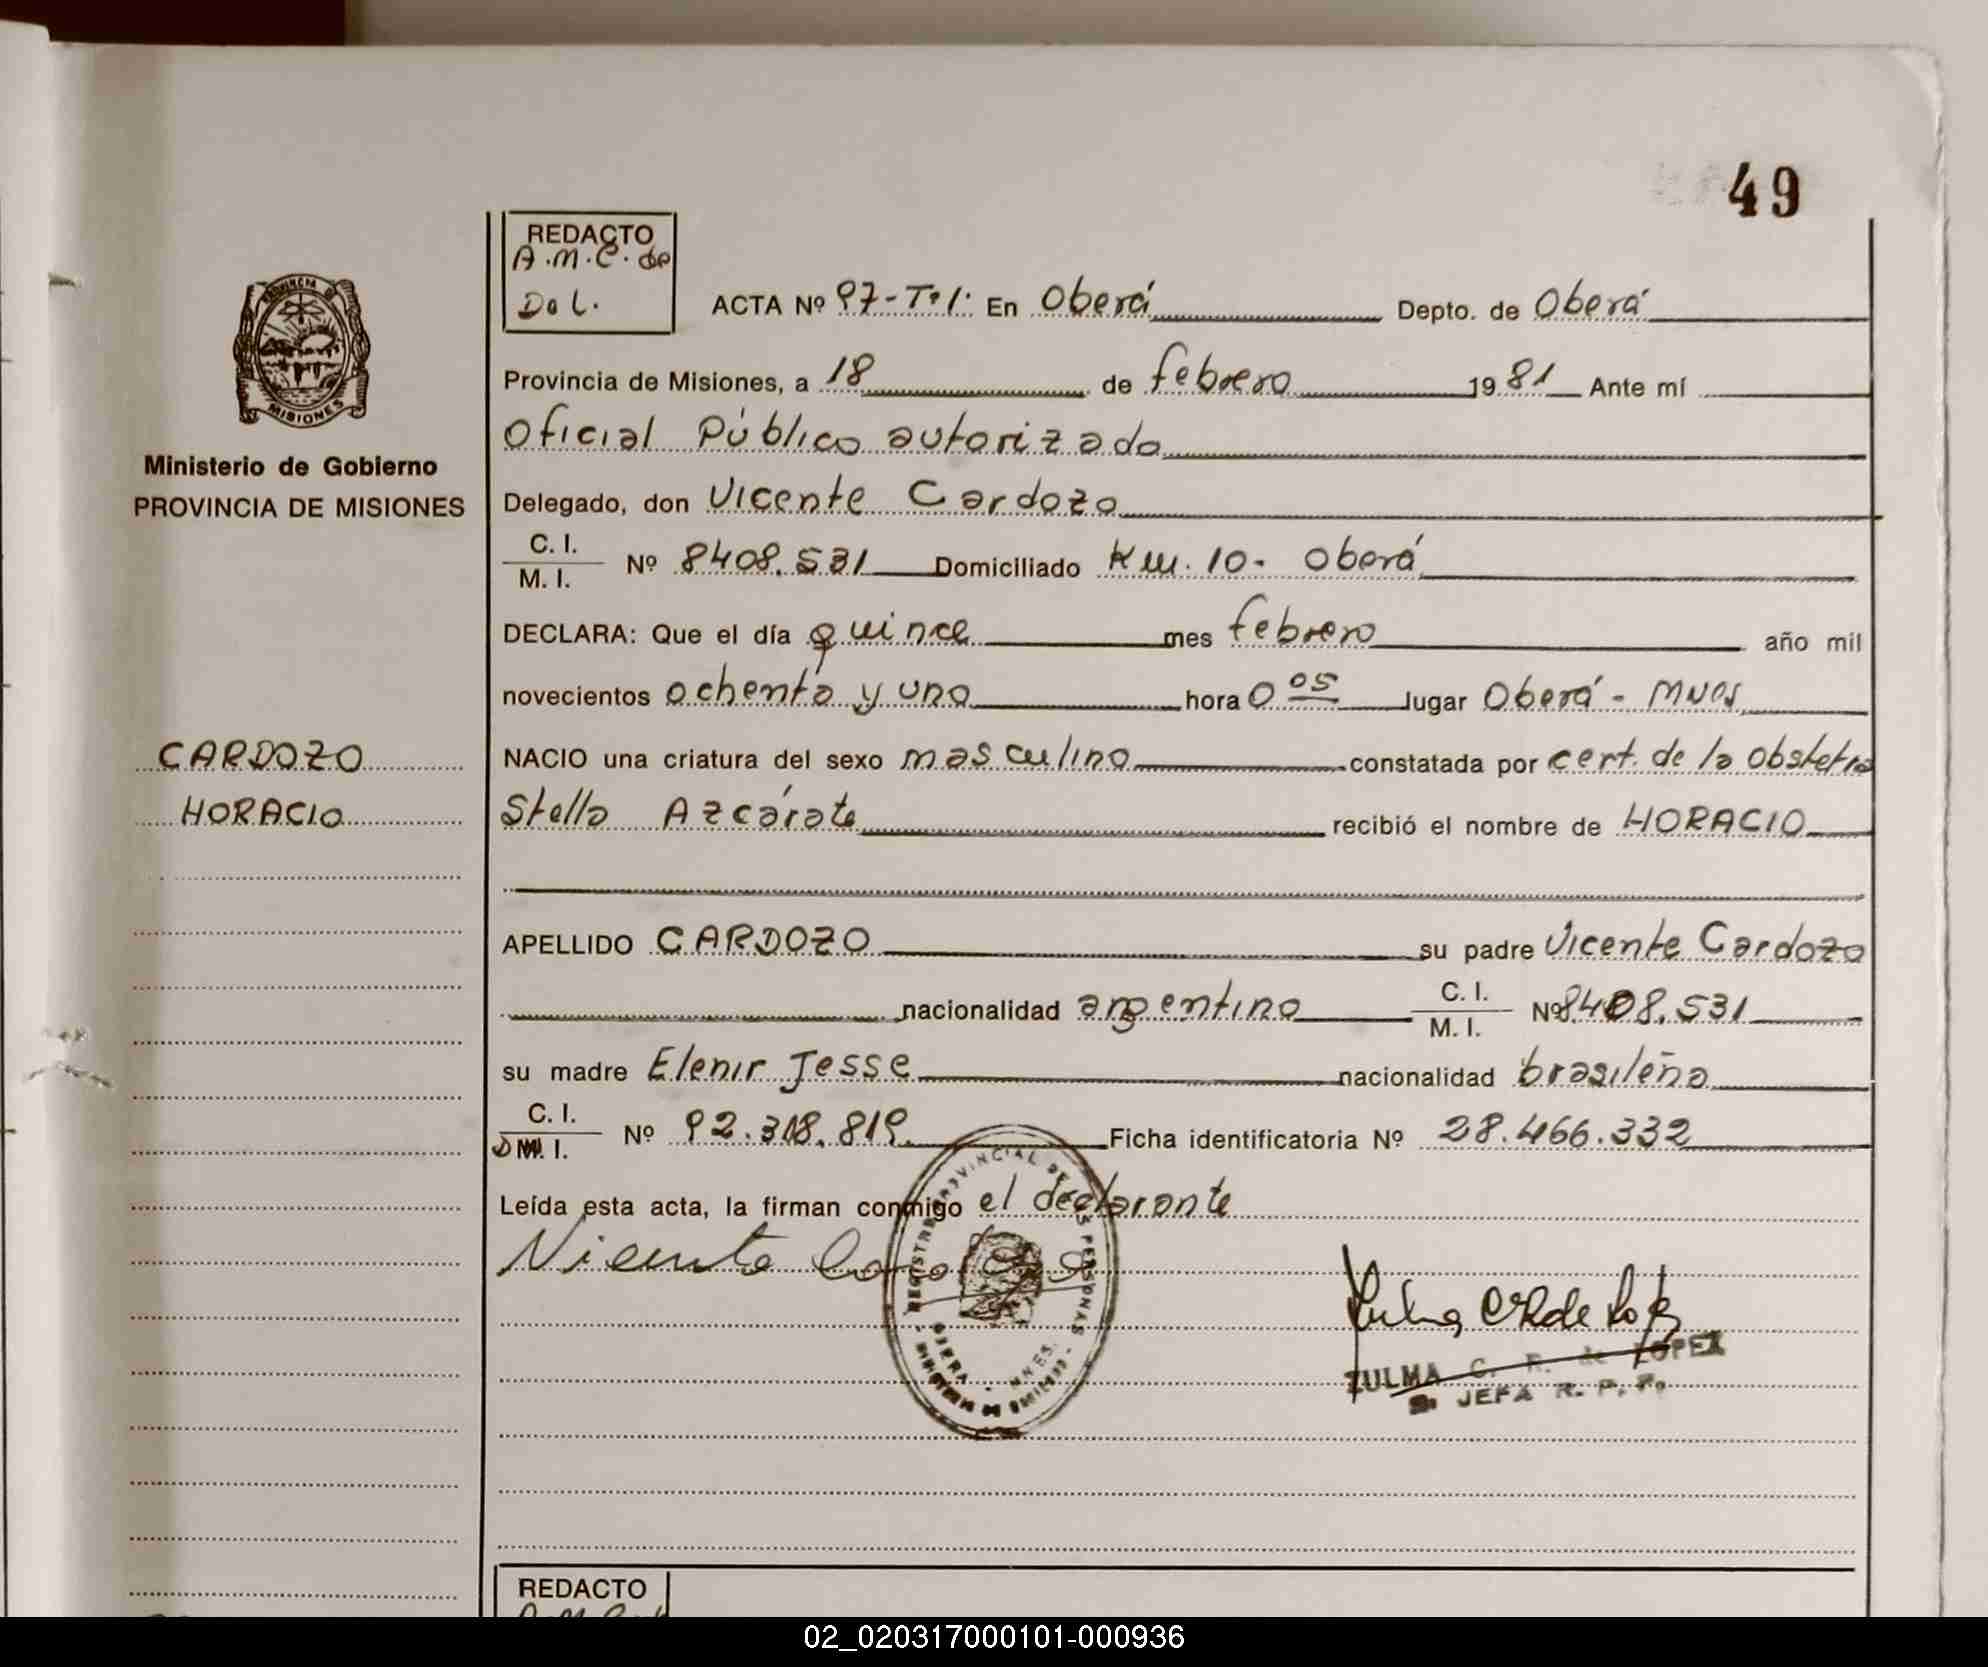 49
REDACTO
A.M.C. de
Da L.
ACTA Nº 97-Tº1: En Oberá Depto. de Oberá
PROVINCIA DE
MISIONES
Ministerio de Gobierno
PROVINCIA DE MISIONES
Provincia de Misiones, a 18 de febrero 1981 Ante mí
Oficial Público autorizado
Delegado, don Vicente Cardozo
C. I.
M. I.
Nº 8408.531 Domiciliado Km. 10- Oberá
DECLARA: Que el día quince mes febrero año mil
novecientos ochenta y uno hora 0 05 lugar Oberá - Mnes
CARDOZO
HORACIO
NACIO una criatura del sexo masculino constatada por cert. de la obstetra
Stella Azcárate recibió el nombre de HORACIO
APELLIDO CARDOZO su padre Vicente Cardozo
nacionalidad argentino C. I. M. I. Nº 8408.531
su madre Elenir Jesse nacionalidad brasileña
C. I.
DM. I.
Nº 92.318.819. Ficha identificatoria Nº 28.466.332
Leída esta acta, la firman conmigo el declarante
Vicente Cardozo
PROVINCIAL DE LAS PERSONAS
ZULMA C. R. de LOPEZ
JEFA R. P. P.
REDACTO
02_020317000101-000936